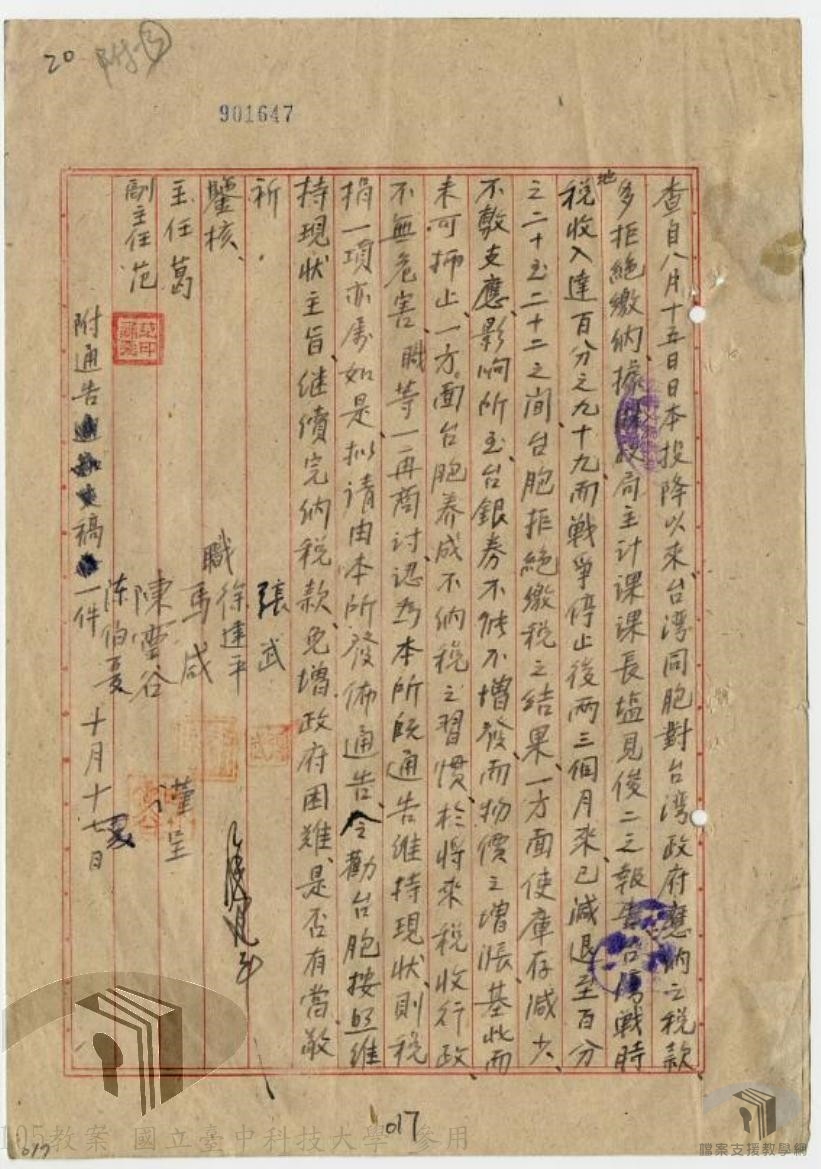 20 附3
901647
查自八月十五日日本投降以來台灣同胞對台灣政府應納之稅款
多拒絕繳納據財政局主計課課長塩見俊二之報告台灣戰時
地
稅收入達百分之九十九而戰爭停止後兩三個月來已減退至百分
之二十至二十二之间台胞拒絕繳稅之结果一方面使庫存減少
不敷支應影响所至台銀券不能不增發而物價之增漲基此而
未可抑止一方面台胞养成不納稅之習慣於將來稅收行政
不無危害職等一再商讨認為本所既通告維持現狀則稅
捐一項亦屬如是拟請由本所發佈通告令勸台胞按照維
持現狀主旨继續完納稅款免增政府困難是否有當敬
祈
鑒核
主任葛
副主任范
職
張武
徐達平
馬咸
陳雲谷
陈伯夏
謹呈
附通告稿一件
十月十七日
017
105教案 國立臺中科技大學 參用
017
檔案支援教學網